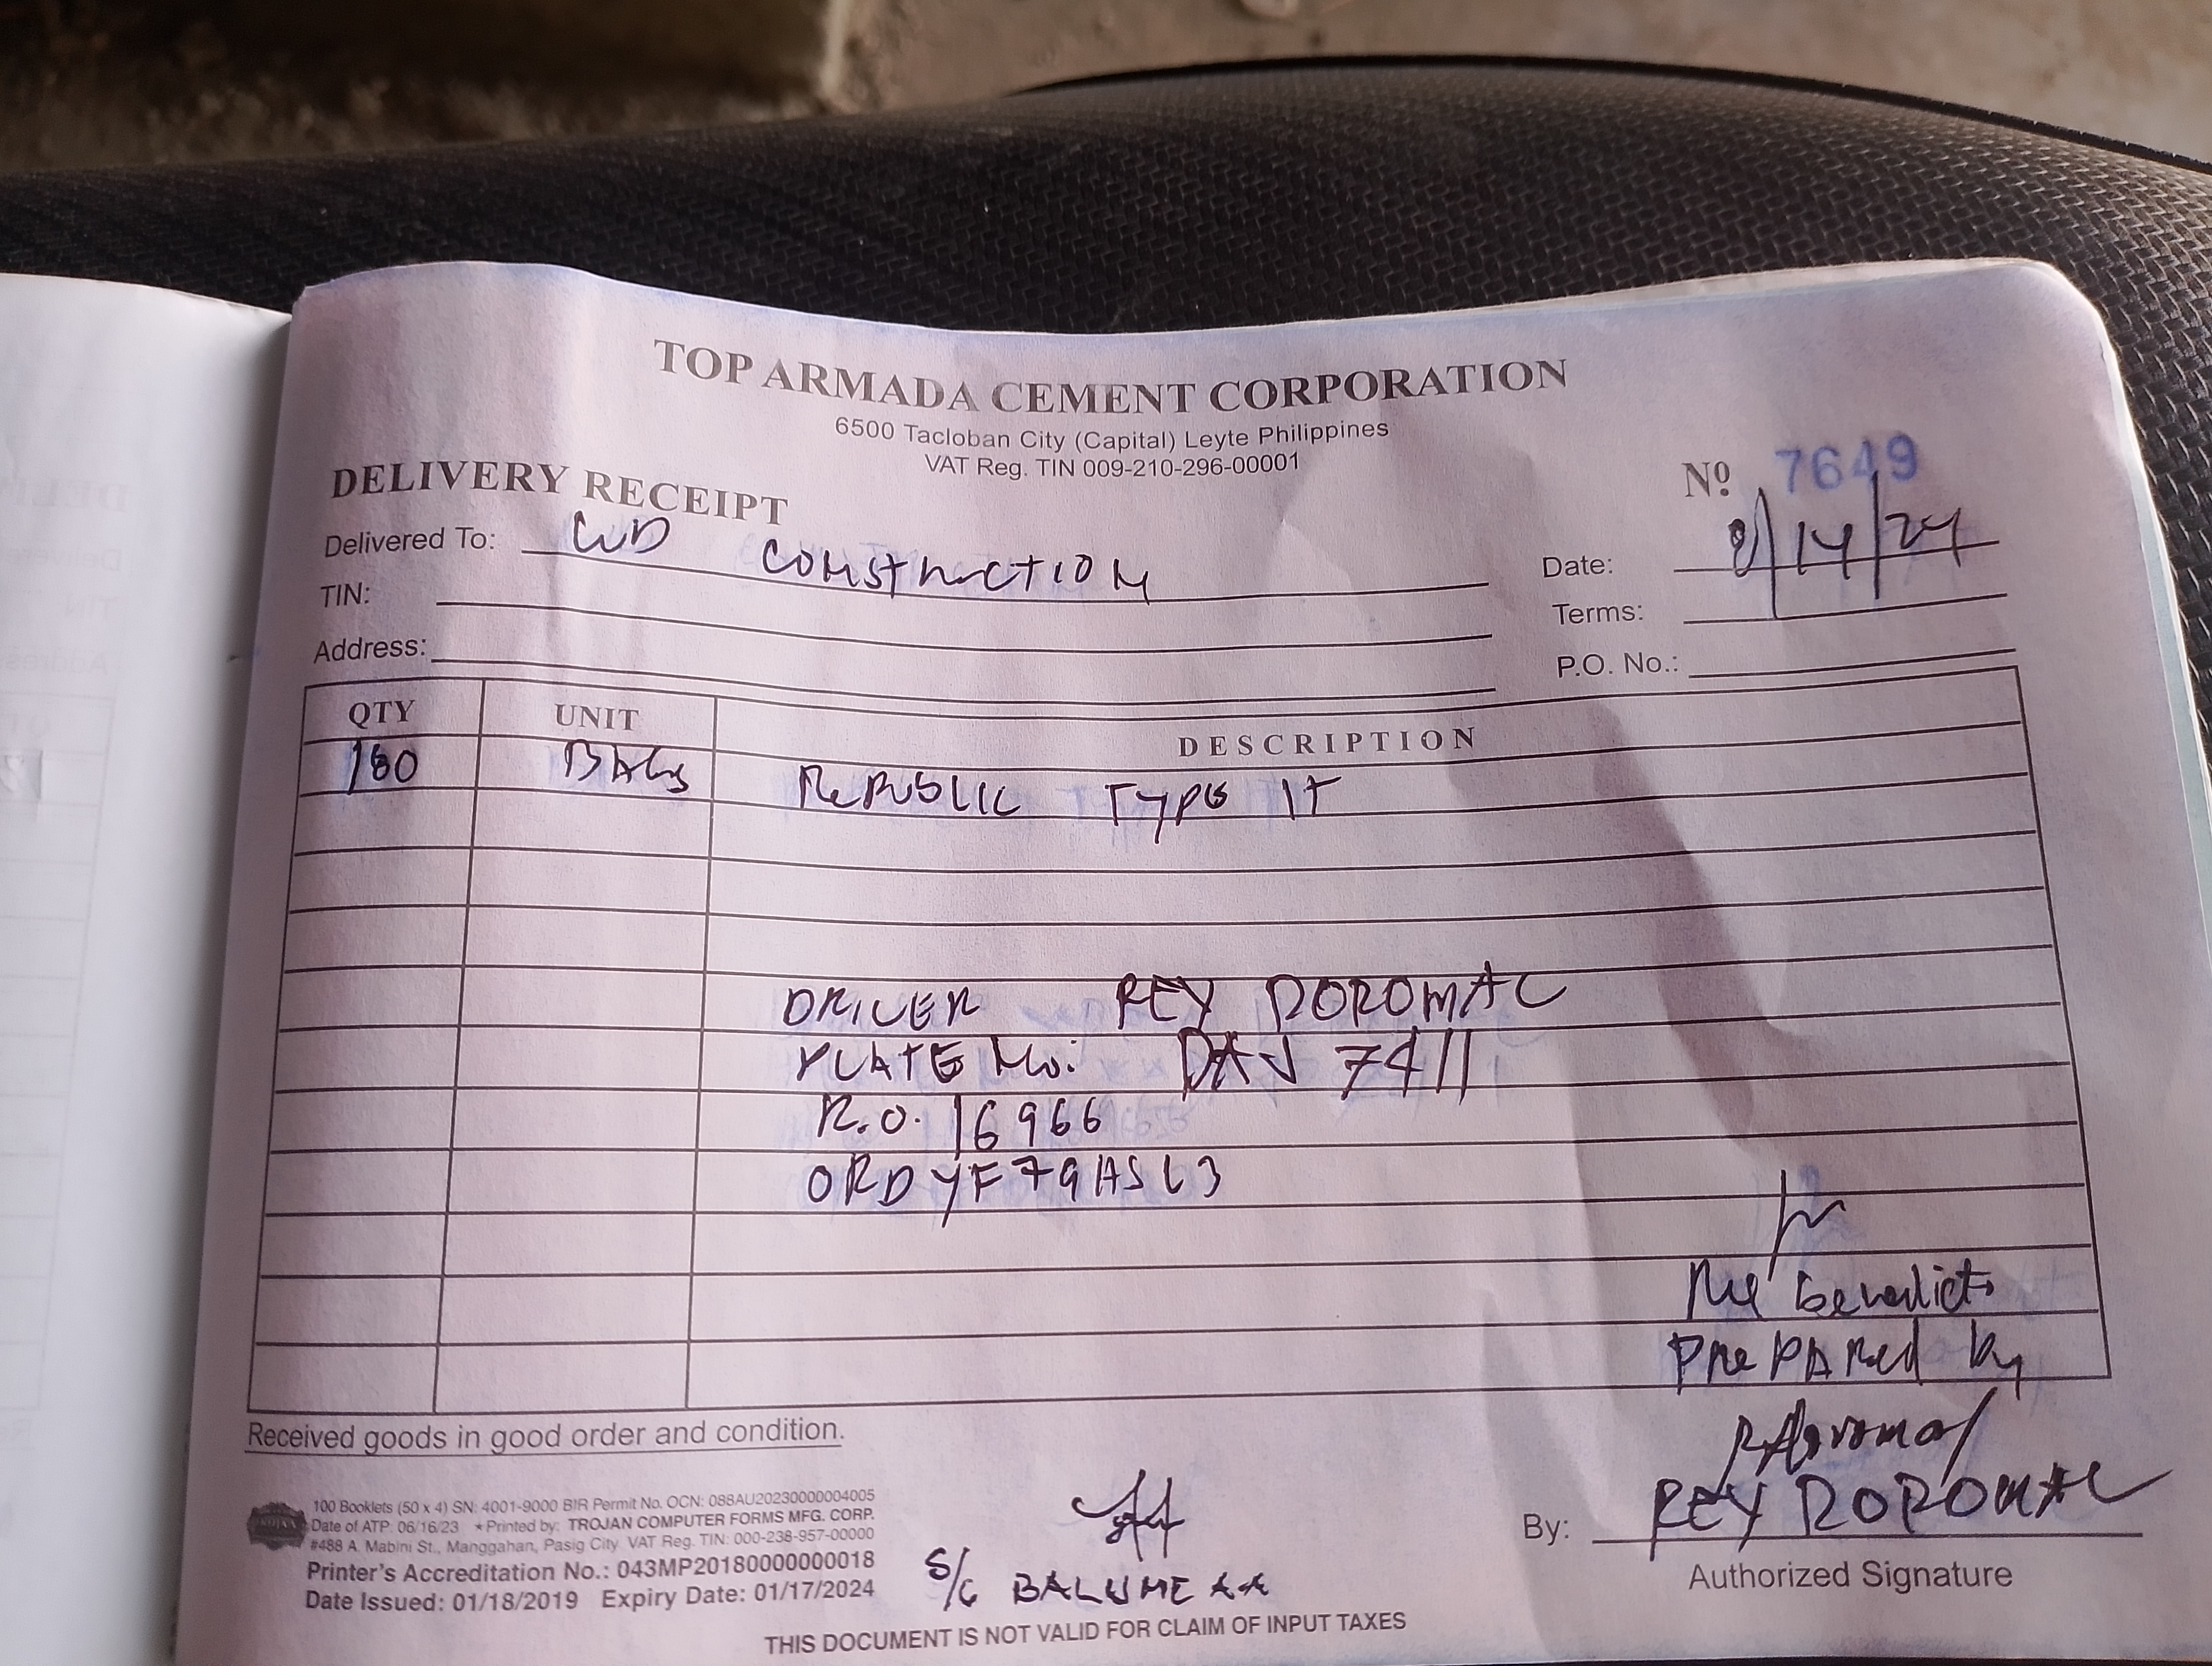 TOP ARMADA CEMENT CORPORATION
6500 Tacloban City (Capital) Leyte Philippines
VAT Reg. TIN 009-210-296-00001
DELIVERY RECEIPT
Nº 7649
Delivered To: CONSTRUCTION
Date: 8/14/24
TIN:
Terms:
Address:
P.O. No.:
QTY UNIT DESCRIPTION
180 BAGS REPUBLIC TYPE 1T
DRIVER REY DOROMAC
PLATE No: DAJ 7411
R.O. 16966
ORDYF79HSL3
Benedicto
Prepared by
Received goods in good order and condition.
REY DOROMAC
By:
Authorized Signature
100 Booklets (50 x 4) SN: 4001-9000 BIR Permit No. OCN: 088AU20230000004005
Date of ATP: 06/16/23 *Printed by: TROJAN COMPUTER FORMS MFG. CORP.
#488 A. Mabini St., Manggahan, Pasig City VAT Reg. TIN: 000-238-957-00000
Printer's Accreditation No.: 043MP20180000000018
Date Issued: 01/18/2019 Expiry Date: 01/17/2024
S/G
THIS DOCUMENT IS NOT VALID FOR CLAIM OF INPUT TAXES